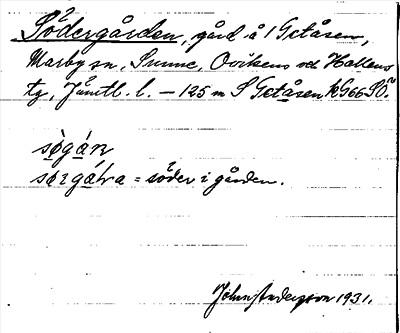 Södergården, gård å 1 Getåsen,
Marby sn, Sunne, Ovikens och Hallens
tg, Jämtl. l. – 125 m S Getåsen kG66SO.
søgán
sørgátra = söder i gården.
John Andersson 1931.